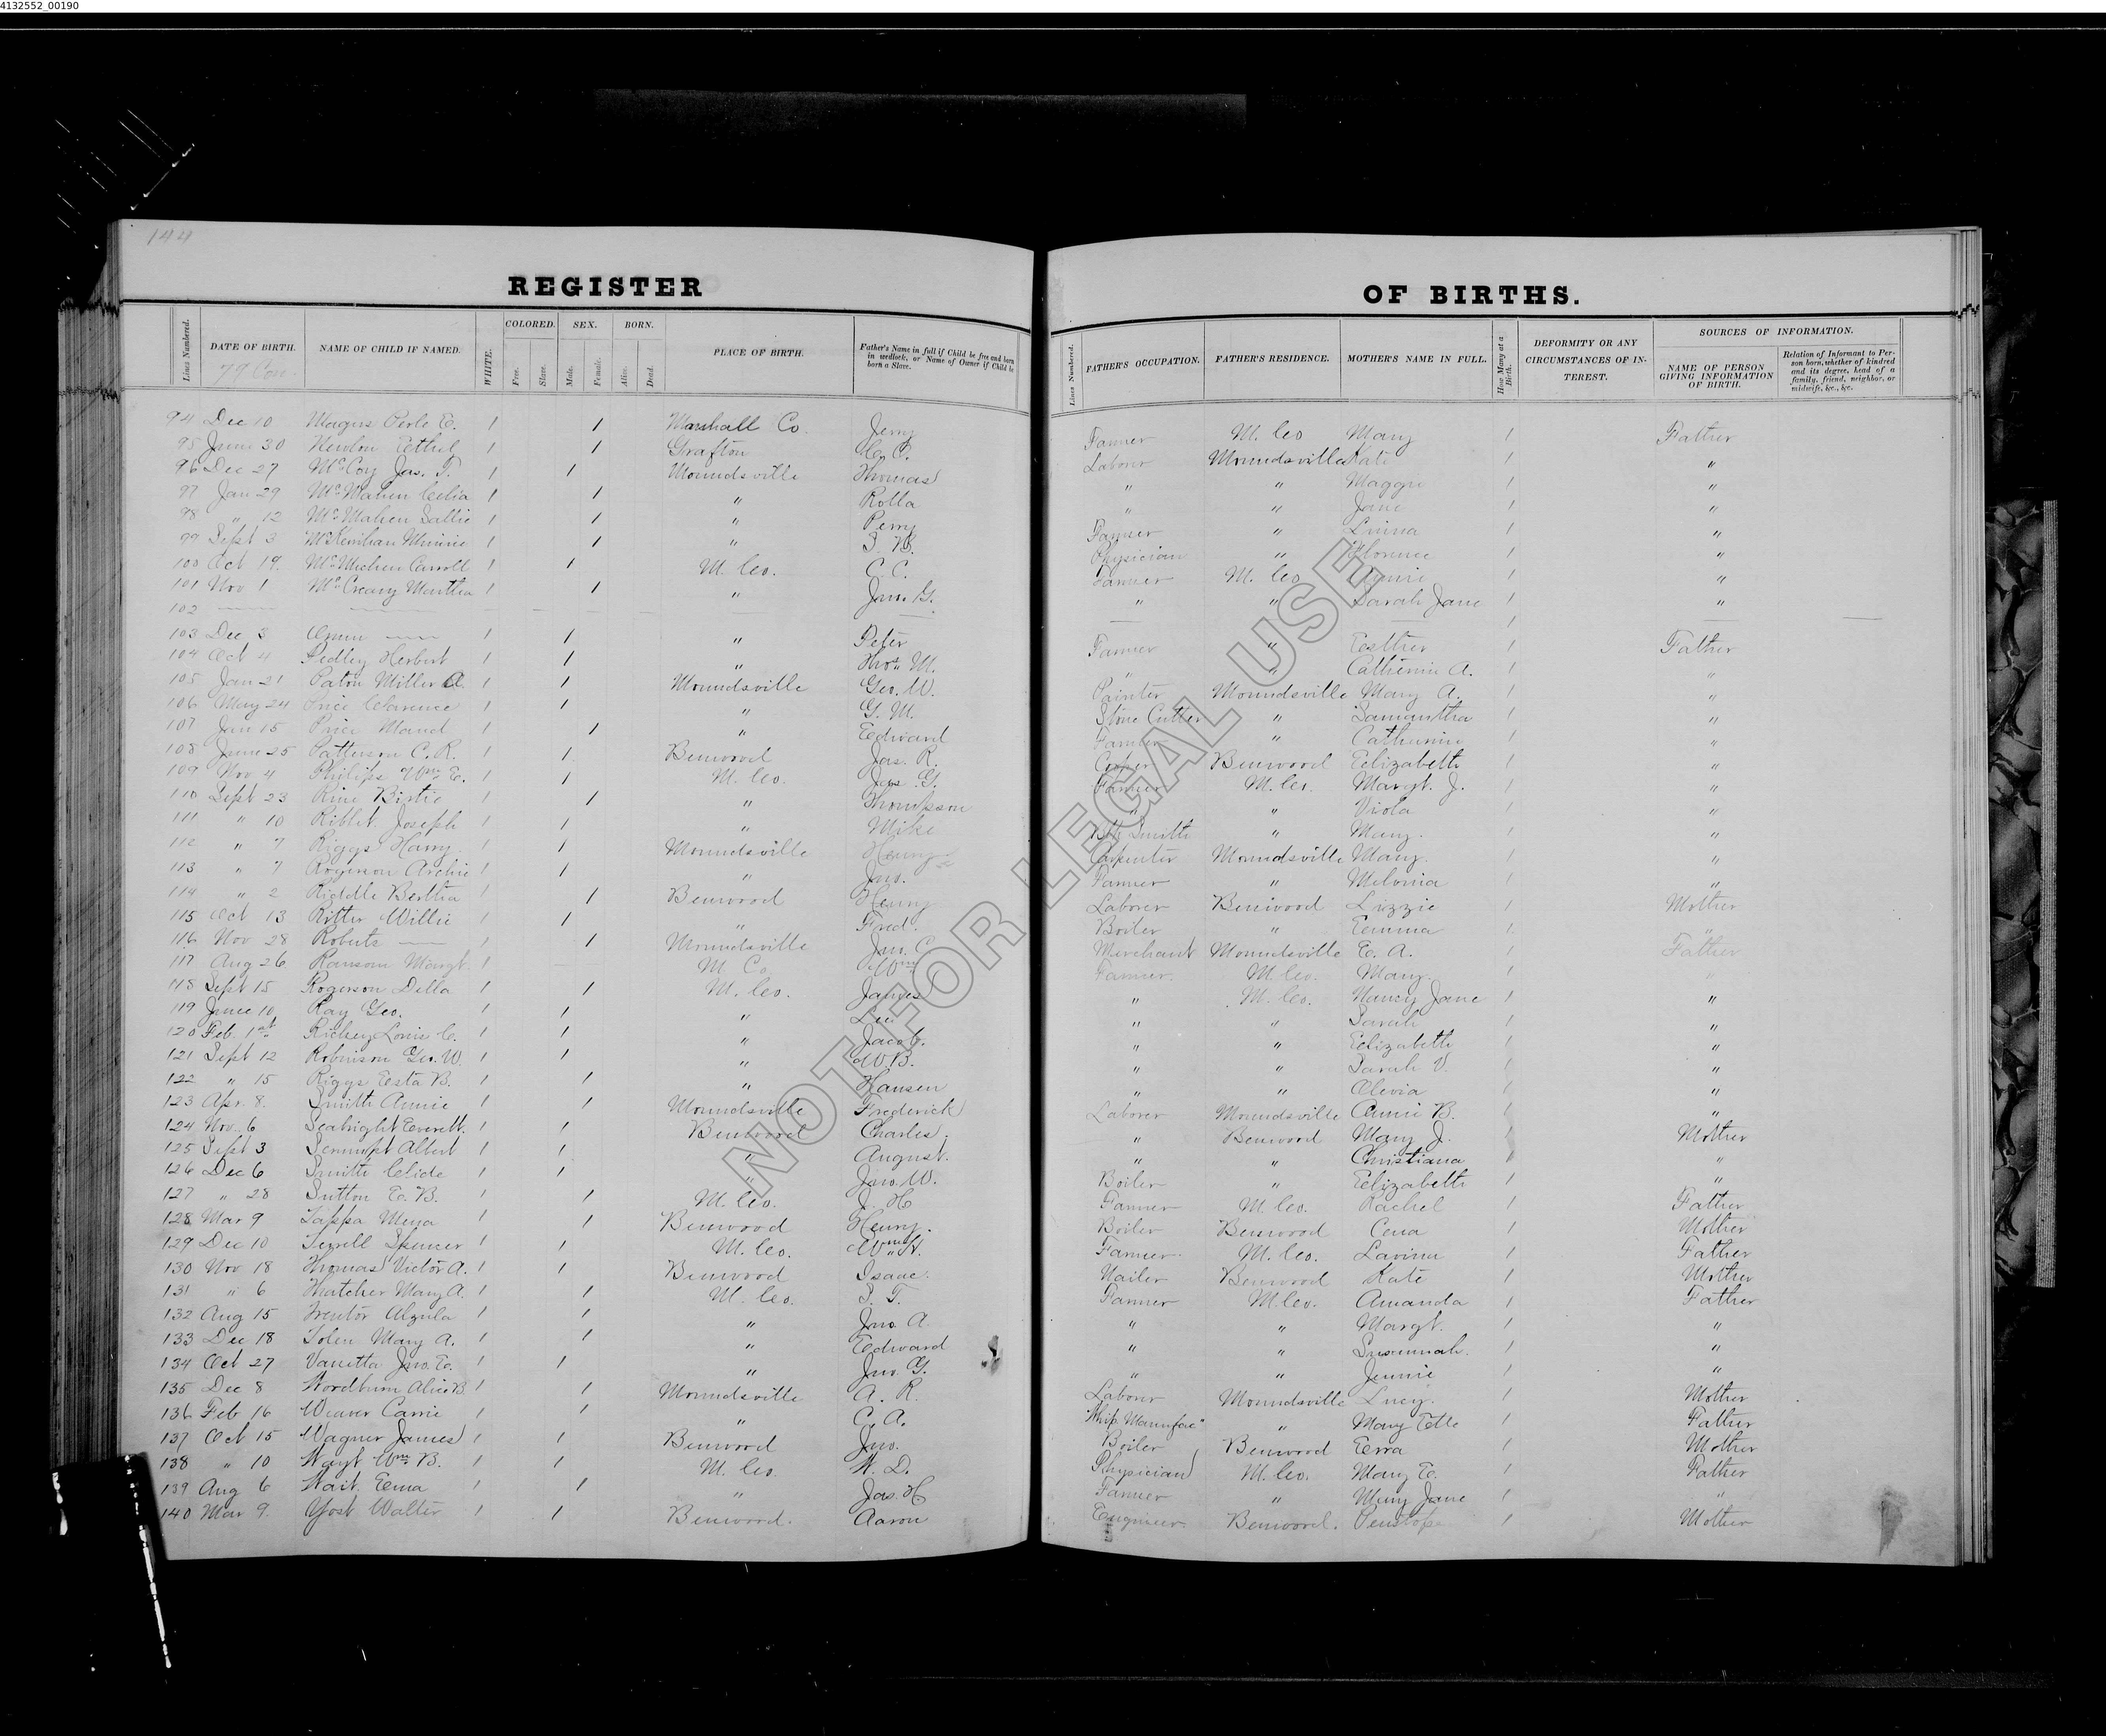 4132552_00190
144
REGISTER
OF BIRTHS.
Lines Numbered. DATE OF BIRTH. NAME OF CHILD IF NAMED. WHITE. COLORED. Free. Slave. SEX. Male. Female. BORN. Alive. Dead. PLACE OF BIRTH. Father's Name in full if Child be free and born in wedlock, or Name of Owner if Child be born a Slave.
Lines Numbered. FATHER'S OCCUPATION. FATHER'S RESIDENCE. MOTHER'S NAME IN FULL. How Many at a Birth. DEFORMITY OR ANY CIRCUMSTANCES OF INTEREST. SOURCES OF INFORMATION. NAME OF PERSON GIVING INFORMATION OF BIRTH. Relation of Informant to Person born, whether of kindred and its degree, head of a family, friend, neighbor, or midwife, &c., &c.
79 Con.
94 Dec 10 Perle E. 1 1 Marshall Co. Jerry Farmer M. Co Mary 1 Father
95 June 30 Newlon Ethel 1 1 Grafton Laborer Moundsville Kate 1 "
96 Dec 27 McCoy Jas. T. 1 1 Moundsville Thomas " " Maggie 1 "
97 Jan 29 McMahen Celia 1 1 " Rolla " " Jane 1 "
98 " 12 McMahen Sallie 1 1 " Perry Farmer " 1 "
99 Sept 3 Minnie 1 1 " Physician " Florence 1 "
100 Oct 19. Carroll 1 1 M. Co. C. C. Farmer M. Co Annie 1 "
101 Nov 1 McCreary Martha 1 1 " Jno. G. " " Sarah Jane 1 "
102 — — — — 1 — —
103 Dec 3 — 1 1 " Peter Farmer " Esther 1 Father
104 Oct 4 Pedley Herbert 1 1 " Thos. M. " " Catherine A. 1 "
105 Jan 21 Paton Miller A. 1 1 Moundsville Geo. W. Painter Moundsville Mary A. 1 "
106 May 24 Price Clarence 1 1 " G. M. Stone Cutter " Samantha 1 "
107 Jan 15 Price Maud 1 1 " Edward Farmer " Catherine 1 "
108 June 25 Patterson C. R. 1 1 Benwood Jas. R. Cooper Benwood Elizabeth 1 "
109 Nov 4 Philips Wm E. 1 1 M. Co. Jas. G. Farmer M. Co. Margt. J. 1 "
110 Sept 23 Rine Birtie 1 1 " Thompson " " Viola 1 "
111 " 10 Riblet Joseph 1 1 " Mike Blk Smith " Mary. 1 "
112 " 7 Riggs Harry. 1 1 Moundsville Henry Carpenter Moundsville Mary. 1 "
113 " 7 Rogerson Archie 1 1 " Jno. Farmer " Melvina 1 "
114 " 2 Riddle Bertha 1 1 Benwood Henry Laborer Benwood Lizzie 1 Mother
115 Oct 13 Ritter Willie 1 1 " Fred. Boiler " Emma 1 "
116 Nov 28 Roberts — 1 1 Moundsville Jno. C. Merchant Moundsville E. A. 1 Father
117 Aug 26 Ransom Margt. 1 M. Co Wm Farmer M. Co. Mary. 1 "
118 Sept 15 Rogerson Della 1 1 M. Co. James " M. Co. Nancy Jane 1 "
119 June 10 Ray Geo. 1 1 " " " Sarah 1 "
120 Feb. 1st Richey Louis C. 1 1 " Jacob. " " Elizabeth 1 "
121 Sept 12 Robinson Geo. W. 1 1 " W. B. " " Sarah V. 1 "
122 " 15 Riggs Esta B. 1 1 " Hansen " " Olevia 1 "
123 Apr. 8. Smith Annie 1 1 Moundsville Frederick Laborer Moundsville Annie B. 1 "
124 Nov. 6 Seabright Everett. 1 1 Benwood Charles. " Benwood Mary J. 1 Mother
125 Sept 3 Albert 1 1 " August. " " Christiana 1 "
126 Dec 6 Smith Clide 1 1 " Jno. W. Boiler " Elizabeth 1 "
127 " 28 Sutton E. B. 1 1 M. Co. J. H Farmer M. Co. Rachel 1 Father
128 Mar 9 Tappa Mena 1 1 Benwood Henry. Boiler Benwood Cena 1 Mother
129 Dec 10 Terrell Spencer 1 1 M. Co. Farmer. M. Co. Lavina 1 Father
130 Nov 18 Thomas Victor A. 1 1 Benwood Isaac. Nailer Benwood Kate 1 Mother
131 " 6 Thatcher Mary A. 1 1 M. Co. S. T. Farmer M. Co. Amanda 1 Father
132 Aug 15 1 1 " Jno. A. " " Margt. 1 "
133 Dec 18 Tolen Mary A. 1 1 " Edward " " Susannah. 1 "
134 Oct 27 Vanetta Jno. E. 1 1 " Jno. G. " " Jennie 1 "
135 Dec 8 Wordburn Alice B. 1 1 Moundsville A. R. Laborer Moundsville Lucy. 1 Mother
136 Feb 16 Weaver Carrie 1 1 " C. A. Whip Manufac" " Mary Etta 1 Father
137 Oct 15 Wagner James 1 1 Benwood Jno. Boiler Benwood 1 Mother
138 " 10 Wayt Wm B. 1 1 M. Co. W. D. Physician M. Co. Mary E. 1 Father
139 Aug 6 Wait. Erma 1 1 " Jas. H Farmer " Mary Jane 1 "
140 Mar 9. Yost Walter 1 1 Benwood. Aaron Engineer. Benwood. Penelope 1 Mother
NOT FOR LEGAL USE